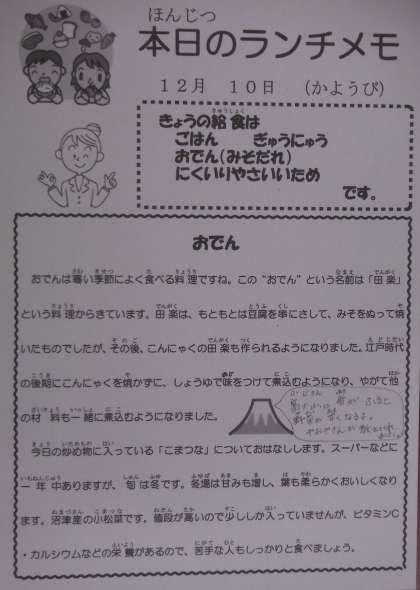 ほんじつ
本日のランチメモ
12月 10日 (かようび)
きゅうしょく
きょうの給食は
ごはん ぎゅうにゅう
おでん(みそだれ)
にくいりやさいいため
です。
おでん
おでんは寒い季節によく食べる料理ですね。この“おでん”という名前は「田楽」
という料理からきています。田楽は、もともとは豆腐を串にさして、みそをぬって焼
いたものでしたが、その後、こんにゃくの田楽も作られるようになりました。江戸時代
の後期にこんにゃくを焼かずに、しょうゆで味をつけて煮込むようになり、やがて他
の材料も一緒に煮込むようになりました。
今日の炒め物に入っている「こまつな」についておはなしします。スーパーなどに
一年中ありますが、旬は冬です。冬場は甘みも増し、葉も柔らかくおいしくなり
ます。沼津産の小松菜です。値段が高いので少ししか入っていませんが、ビタミンC
・カルシウムなどの栄養があるので、苦手な人もしっかりと食べましょう。